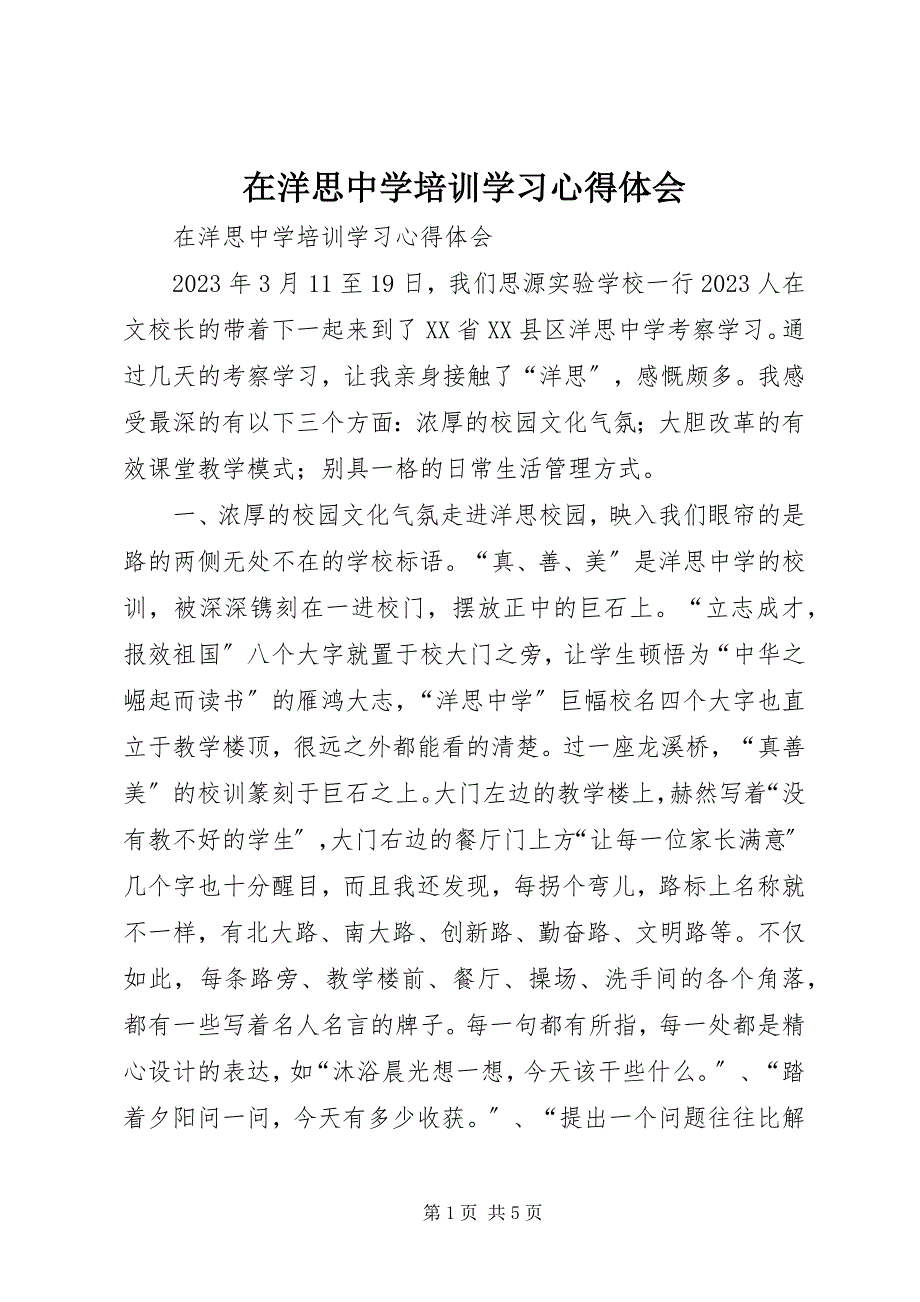 在洋思中学培训学习心得体会
在洋思中学培训学习心得体会
2023 年 3 月 11 至 19 日，我们思源实验学校一行 2023 人在
文校长的带着下一起来到了 XX 省 XX 县区洋思中学考察学习。通
过几天的考察学习，让我亲身接触了“洋思〞，感慨颇多。我感
受最深的有以下三个方面：浓厚的校园文化气氛；大胆改革的有
效课堂教学模式；别具一格的日常生活管理方式。
一、浓厚的校园文化气氛走进洋思校园，映入我们眼帘的是
路的两侧无处不在的学校标语。“真、善、美〞是洋思中学的校
训，被深深镌刻在一进校门，摆放正中的巨石上。“立志成才，
报效祖国〞八个大字就置于校大门之旁，让学生顿悟为“中华之
崛起而读书〞的雁鸿大志，“洋思中学〞巨幅校名四个大字也直
立于教学楼顶，很远之外都能看的清楚。过一座龙溪桥，“真善
美〞的校训篆刻于巨石之上。大门左边的教学楼上，赫然写着“没
有教不好的学生〞，大门右边的餐厅门上方“让每一位家长满意〞
几个字也十分醒目，而且我还发现，每拐个弯儿，路标上名称就
不一样，有北大路、南大路、创新路、勤奋路、文明路等。不仅
如此，每条路旁、教学楼前、餐厅、操场、洗手间的各个角落，
都有一些写着名人名言的牌子。每一句都有所指，每一处都是精
心设计的表达，如“沐浴晨光想一想，今天该干些什么。〞、“踏
着夕阳问一问，今天有多少收获。〞、“提出一个问题往往比解
第 1 页 共 5 页